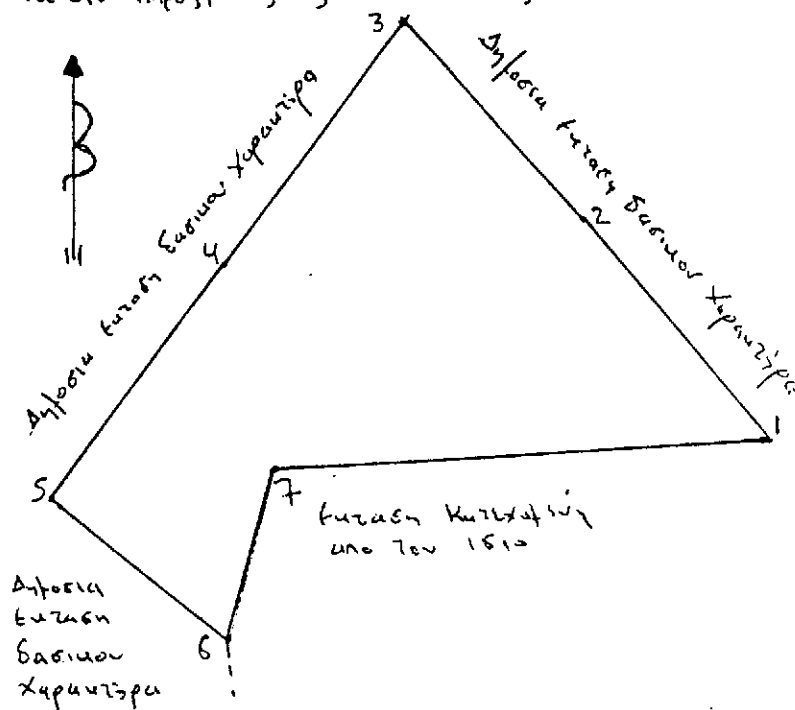 3
Δημοσια εκταση δασικου χαρακτηρα
Β
Δημοσια εκταση δασικου χαρακτηρα
2
4
1
5
7
εκταση κατεχομενη
απο τον ιδιο
Δημοσια
εκταση
δασικου
χαρακτηρα
6